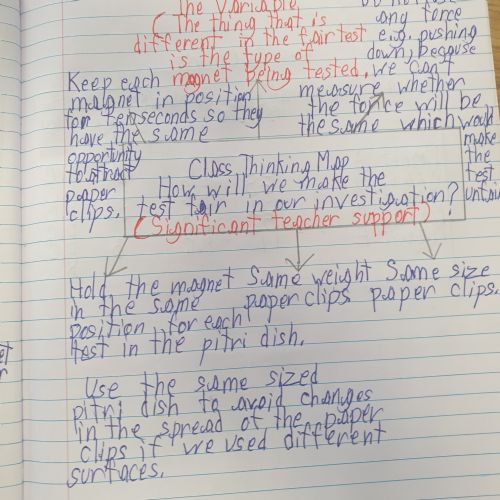 the Variable
(the thing that is
different in the fair test
is the type of
magnet being tested.
any force
e.g. pushing
down, because
we can't
measure whether
the force will be
the same which would
make
the
test
Keep each
magnet in position
for ten seconds so they
have the same
opportunity
to attract
paper
clips.
Class Thinking Map
How will we make the
test fair in our investigation?
(Significant teacher support)
Hold the magnet
in the same
position for each
test in the pitri dish.
Same weight
paper clips
Same size
paper clips.
Use the same sized
pitri dish to avoid changes
in the spread of the paper
clips if we used different
surfaces.